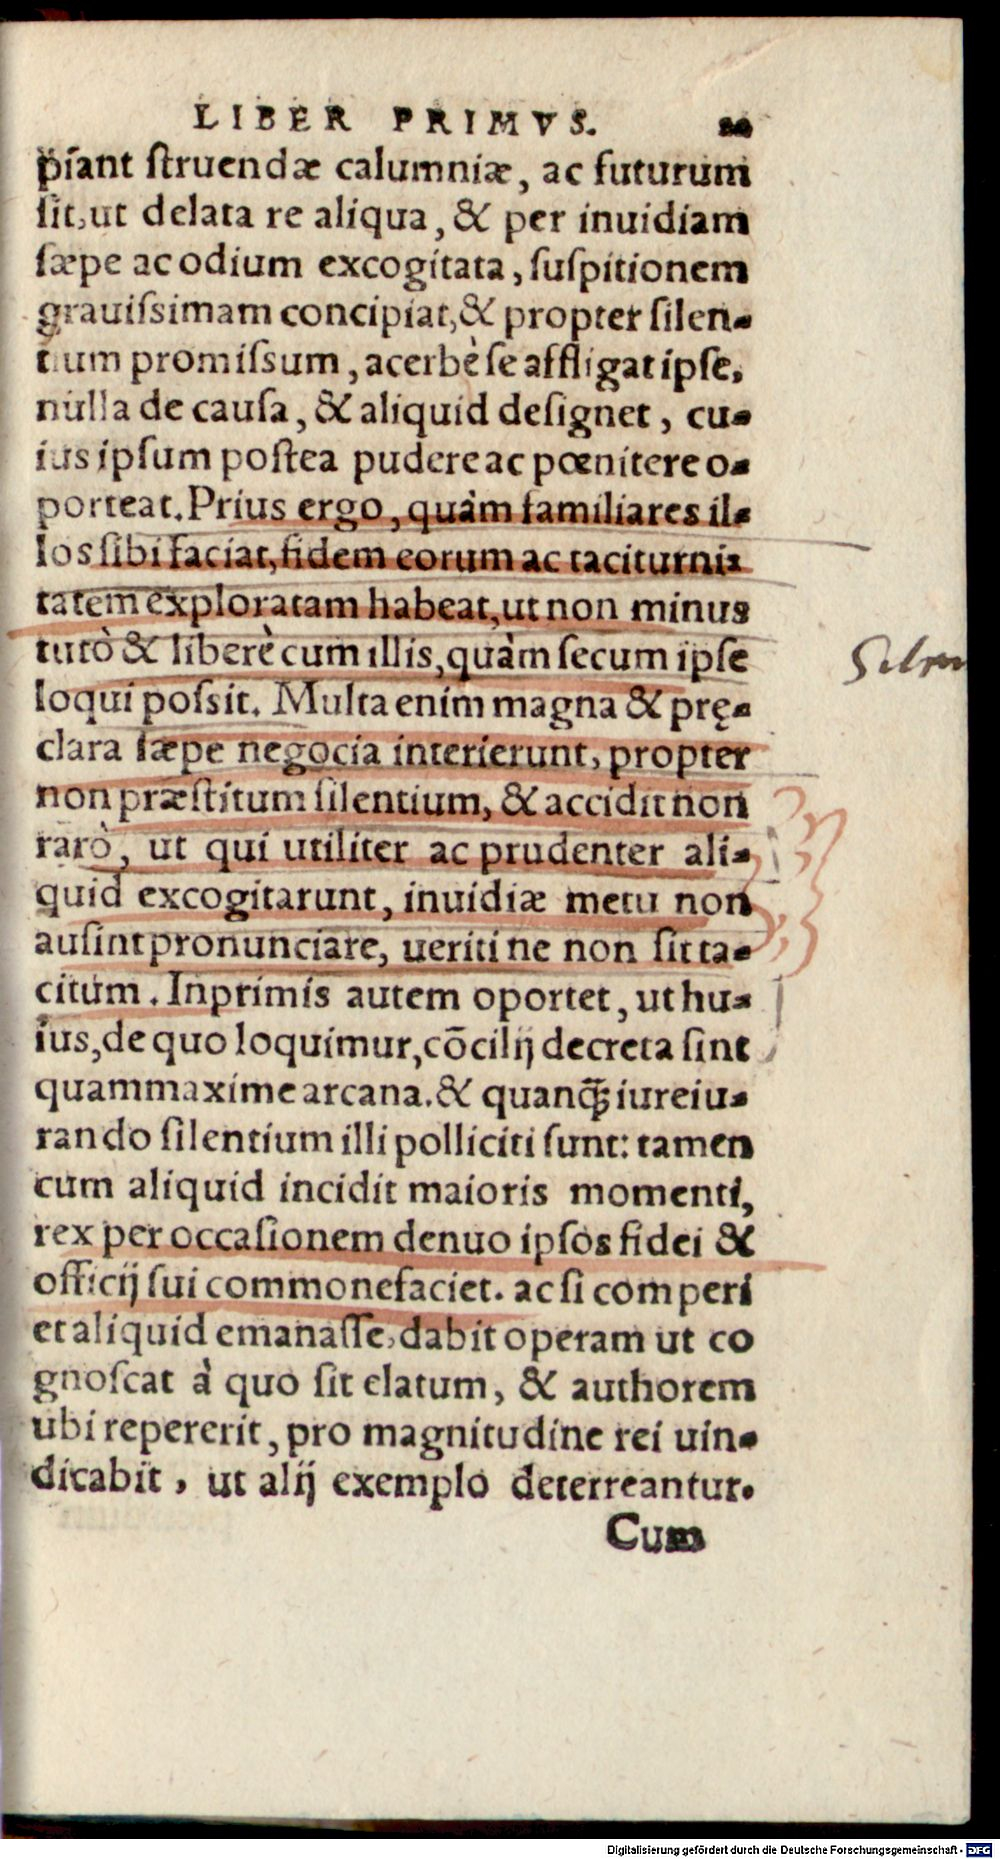 LIBER PRIMVS. 20
piant struendæ calumniæ, ac futurum
sit, ut delata re aliqua, & per inuidiam
sæpe ac odium excogitata, suspitionem
grauissimam concipiat, & propter silen-
tium promissum, acerbè se affligat ipse,
nulla de causa, & aliquid designet, cu-
ius ipsum postea pudere ac pœnitere o-
porteat. Prius ergo, quàm familiares il-
los sibi faciat, fidem eorum ac taciturni-
tatem exploratam habeat, ut non minus
tutò & liberè cum illis, quàm secum ipse
loqui possit. Multa enim magna & prę-
clara sæpe negocia interierunt, propter
non præstitum silentium, & accidit non
rarò, ut qui utiliter ac prudenter ali-
quid excogitarunt, inuidiæ metu non
ausint pronunciare, ueriti ne non sit ta-
citum. Inprimis autem oportet, ut hu-
ius, de quo loquimur, cõcilij decreta sint
quammaxime arcana. & quanq̃ iureiu-
rando silentium illi polliciti sunt: tamen
cum aliquid incidit maioris momenti,
rex per occasionem denuo ipsos fidei &
officij sui commonefaciet. ac si comperi
et aliquid emanasse, dabit operam ut co
gnoscat à quo sit elatum, & authorem
ubi repererit, pro magnitudine rei uin-
dicabit, ut alij exemplo deterreantur.
Cum
Digitalisierung gefördert durch die Deutsche Forschungsgemeinschaft - DFG